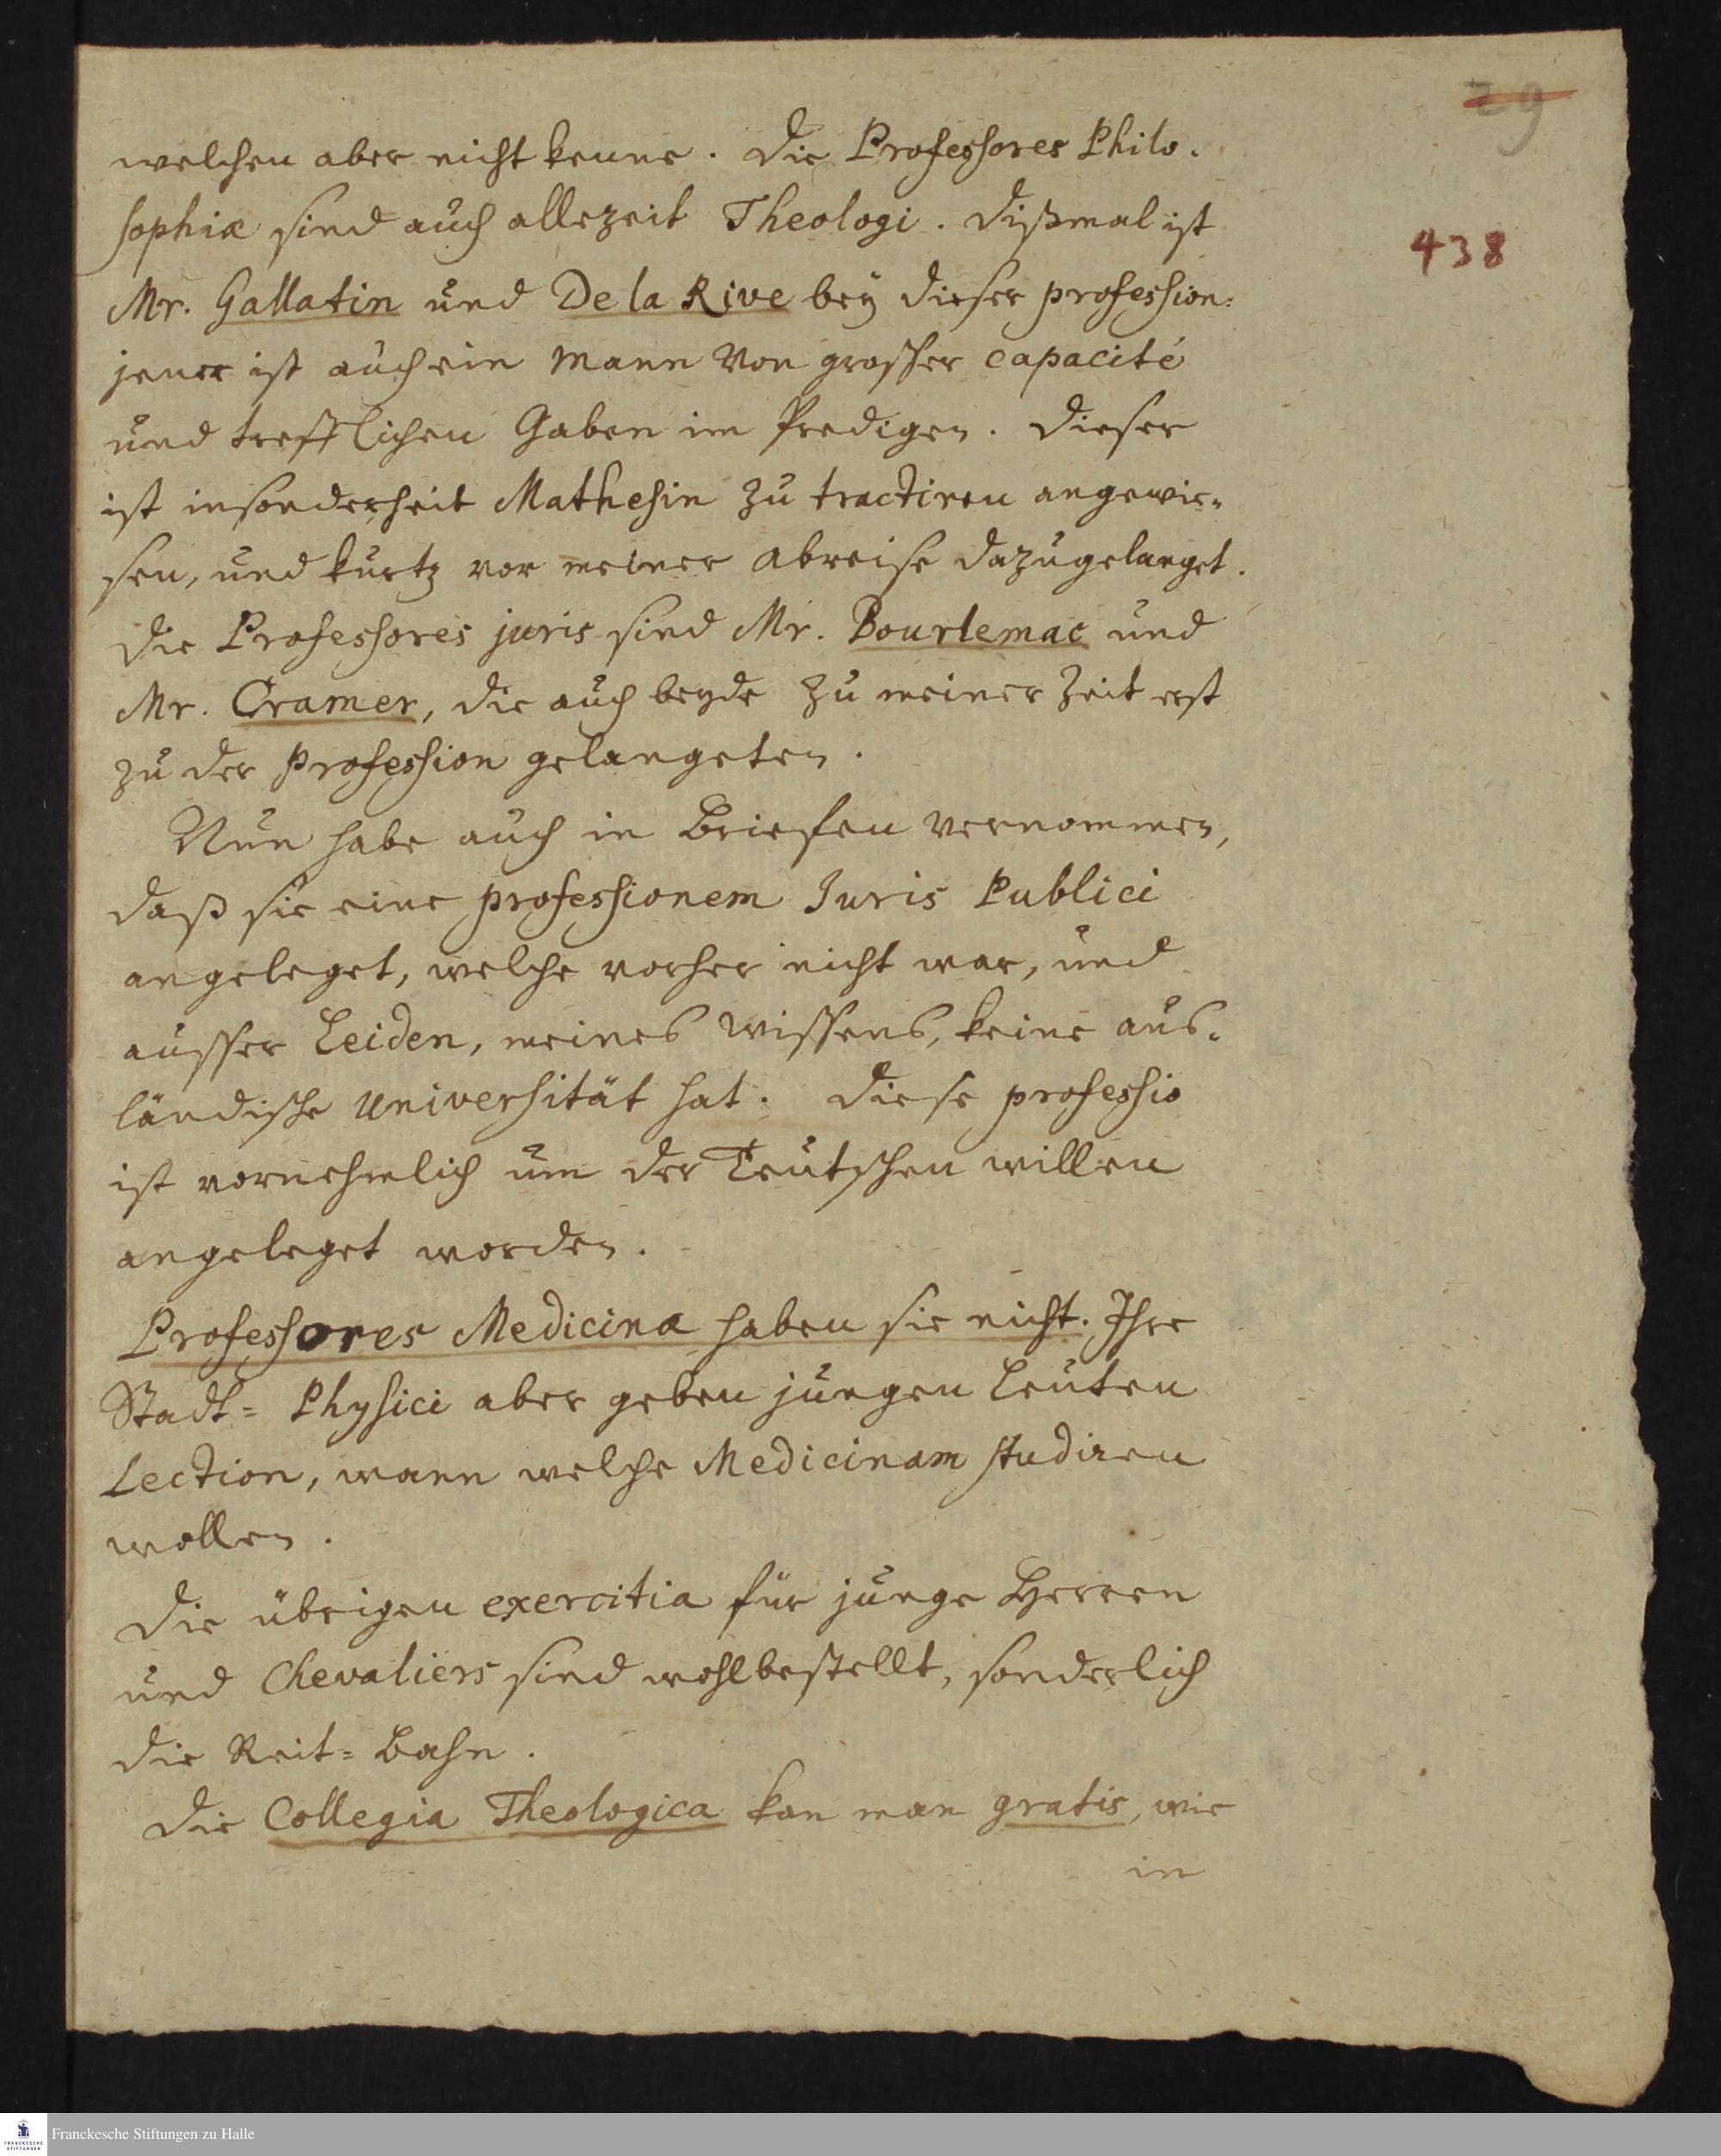 29
438
welchen aber nicht kenne. Die Professores Philo-
sophiæ sind auch allezeit Theologi. Dißmal ist
Mr. Gallatin und De la Rive bey dieser profession:
jener ist auch ein Mann von grosser capacité
und trefflichen Gaben im Predigen. Dieser
ist insonderheit Mathesin zu tractiren angewie-
sen, und kurtz vor meiner Abreise dazu gelanget.
Die Professores juris sind Mr. Bourlemac und
Mr. Cramer, die auch beyde zu meiner Zeit erst
zu der Profession gelangeten.
Nun habe auch in Briefen vernommen,
daß sie eine professionem Juris Publici
angeleget, welche vorher nicht war, und
ausser Leiden, meines Wissens, keine aus-
ländische Universität hat. Diese professio
ist vornehmlich um der Teutschen willen
angeleget worden.
Professores Medicinæ haben sie nicht. Ihre
Stadt= Physici aber geben jungen Leuten
Lection, wann welche Medicinam studiren
wollen.
Die übrigen exercitia für junge Herren
und Chevaliers sind wohlbestellt, sonderlich
die Reit=Bahn.
Die Collegia Theologica kan man gratis, wie
in
Franckesche Stiftungen zu Halle
FRANCKESCHE
STIFTUNGEN